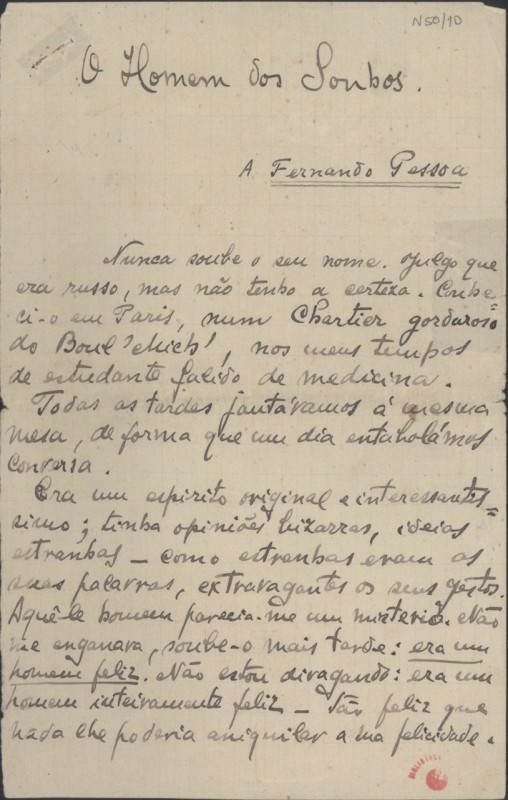 N50/10
O Homem dos Sonhos.
A Fernando Pessoa
Nunca soube o seu nome. Julgo que
era russo, mas não tenho a certeza. Conhe=
ci-o em Paris, num Chartier gorduroso
do Boul'Mich', nos meus tempos
de estudante falido de medicina.
Todas as tardes jantávamos á mesma
mesa, de forma que um dia entabolámos
conversa.
Era um espirito original e interessantis=
simo; tinha opiniões bizarras, ideias
estranhas — como estranhas eram as
suas palavras, extravagantes os seus gestos.
Aquêle homem parecia-me um misterio. Não
me enganava, soube-o mais tarde: era um
homem feliz. Não estou divagando: era um
homem inteiramente feliz — tão feliz que
nada lhe poderia aniquilar a sua felicidade.